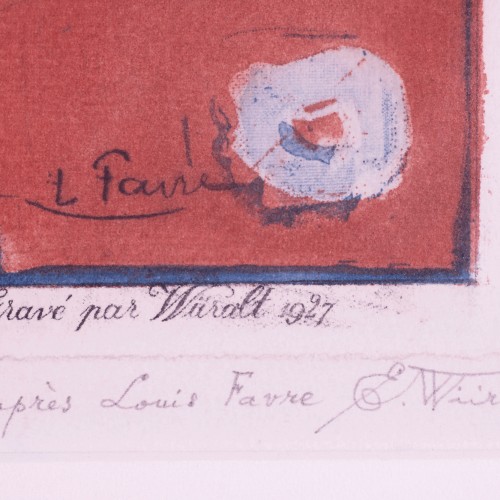 L Favre
ravé par Würalt 1927
près Louis Favre E. Wiir